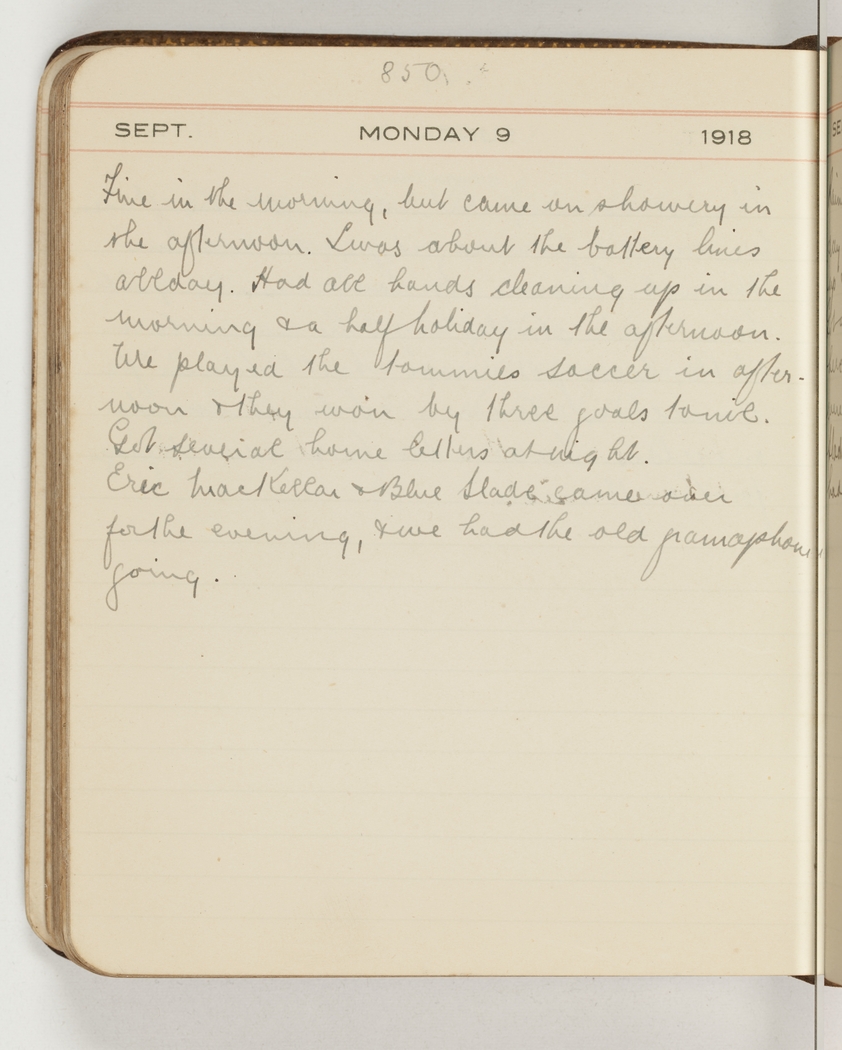 850.
SEPT. MONDAY 9 1918
Fine in the morning, but came on showery in
the afternoon. I was about the battery lines
all day. Had all hands cleaning up in the
morning & a half holiday in the afternoon.
We played the Tommies soccer in after-
noon & they won by three goals to nil.
Got several home letters at night.
Eric MacKellar & Blue Slade came over
for the evening, & we had the old gramaphone
going.